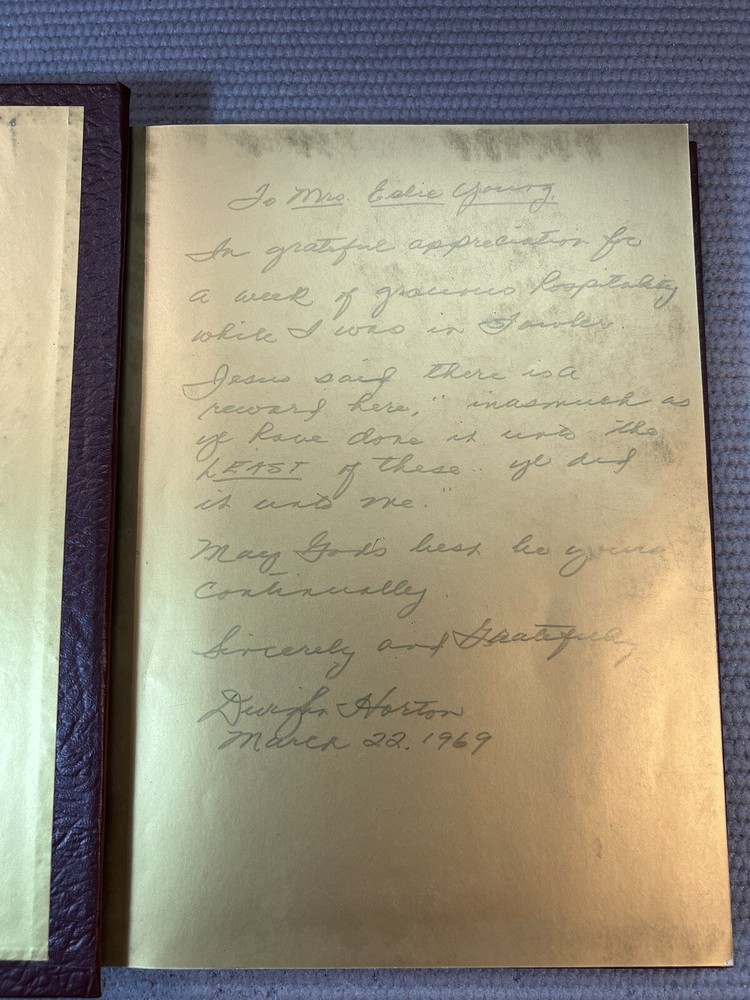 To Mrs. Edie Young,
In grateful appreciation for
a week of gracious hospitality
while I was in Fowler.
Jesus said there is a
reward here, "inasmuch as
ye have done it unto the
LEAST of these .. ye did
it unto me."
May God's best be yours
continually.
Sincerely and Gratefully
Dwight Horton
March 22, 1969